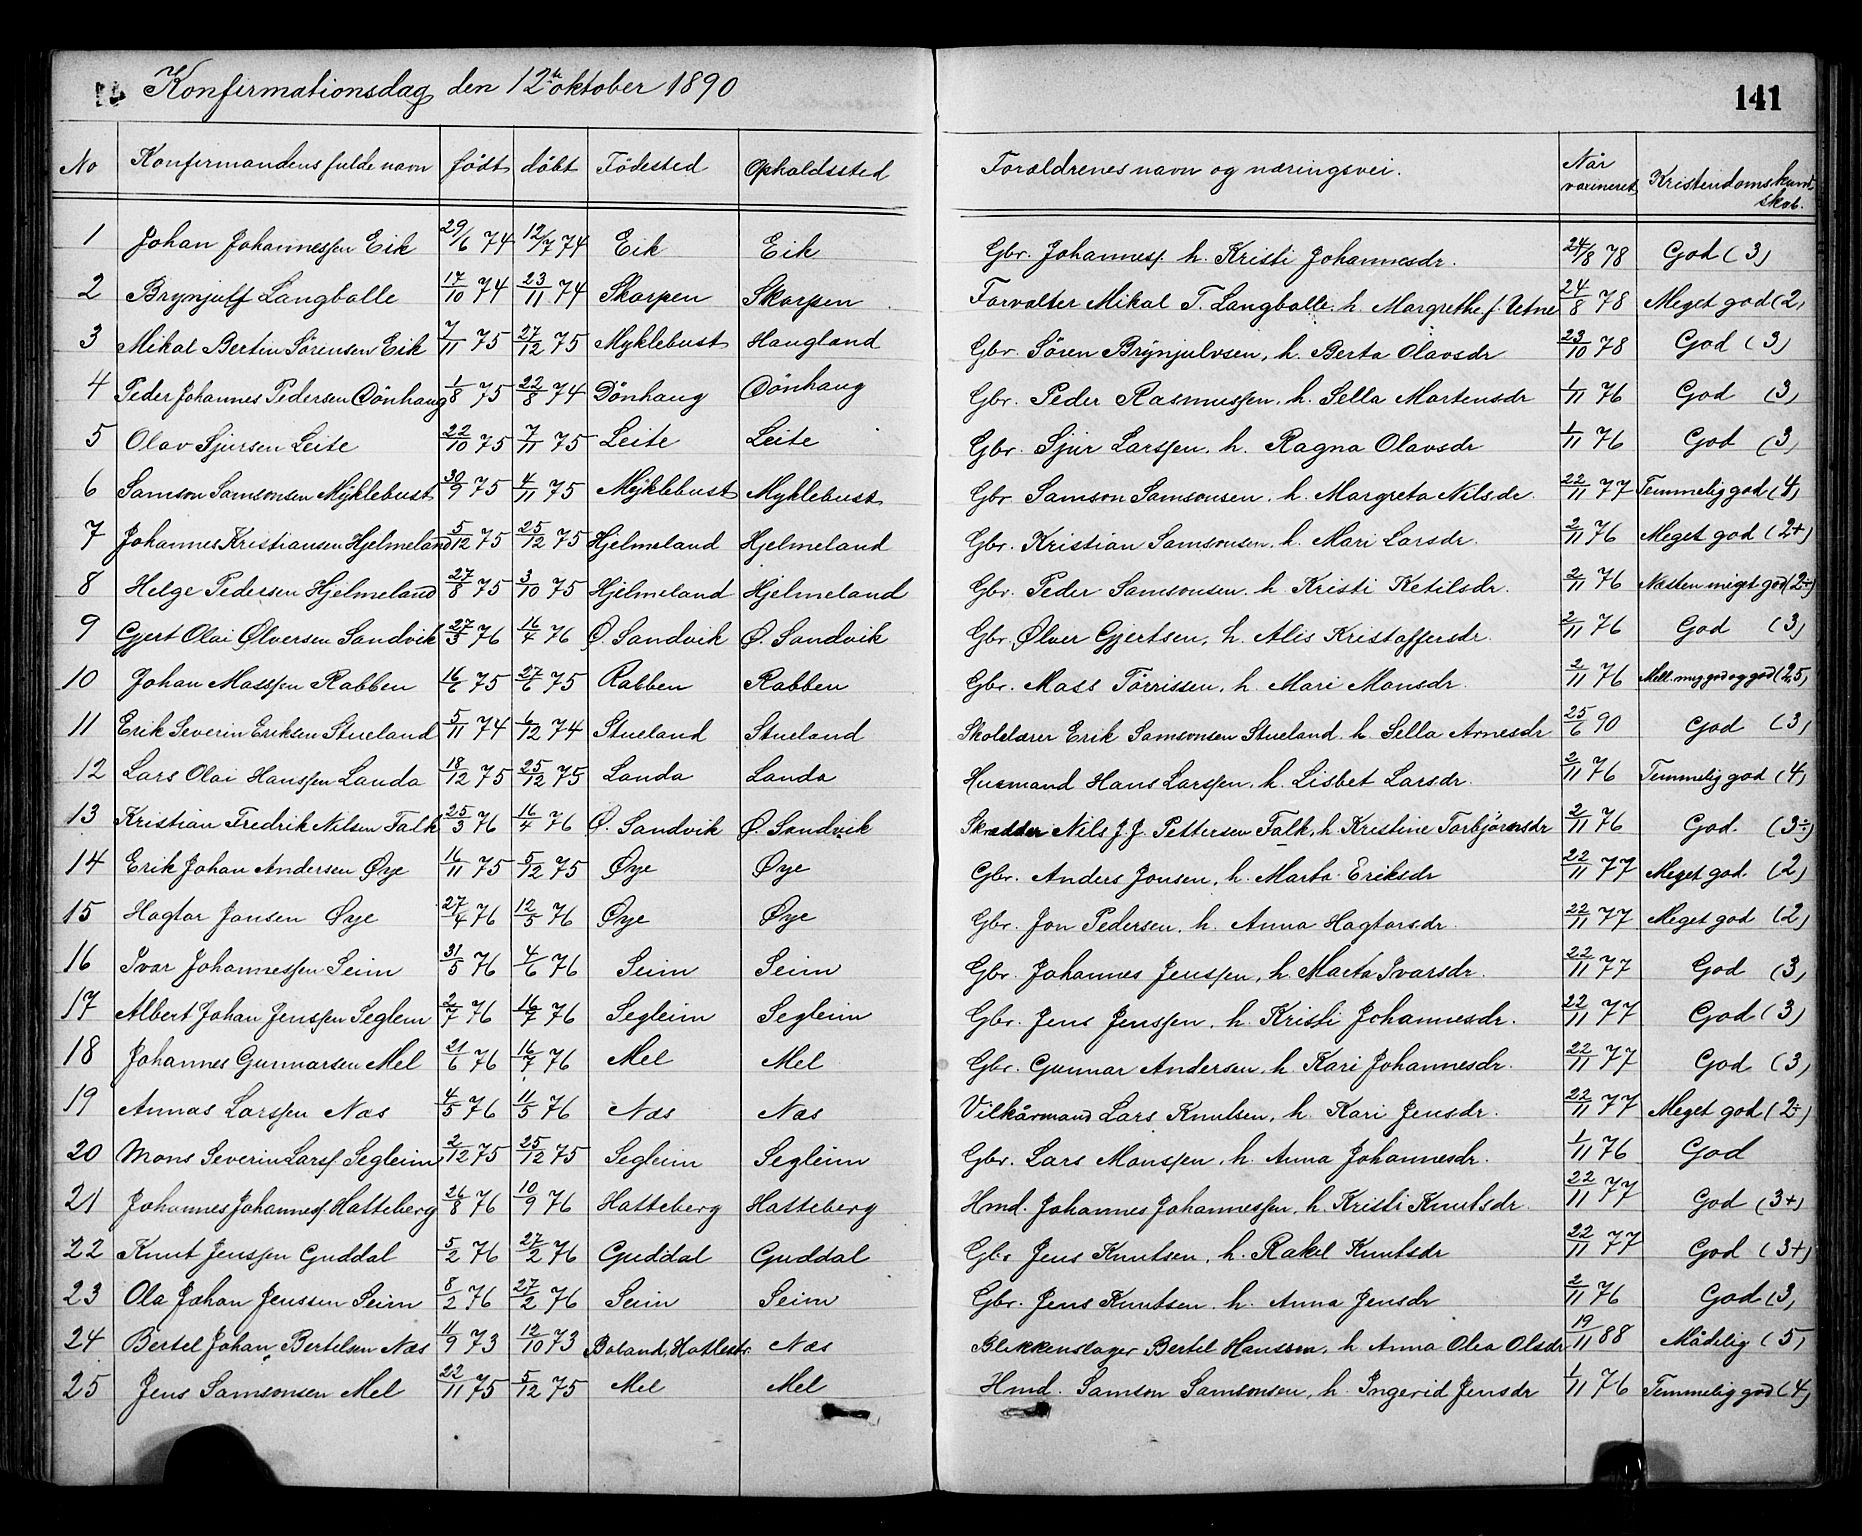 Konfirmationsdag den 12te oktober 1890
141
No Konfirmandens fulde navn født døbt Fødested Opholdssted Forældrenes navn og næringsvei. Når vaxineret Kristendomskundskab.
1 Johan Johannessen Eik 29/6 74 12/7 74 Eik Eik Gbr. Johanness. h. Kristi Johannesdr. 24/8 78 God (3)
2 Brynjulf Langballe 17/10 74 23/11 74 Skarpen Skarpen Forvalter Mikal T. Langballe. h. Margrethe f. Utne 24/8 78 Meget god (2)
3 Mikal Bertin Sørensen Eik 7/11 75 27/12 75 Myklebust Haugland Gbr. Søren Brynjulvsen, h. Berta Olavsdr 23/10 78 God (3)
4 Peder Johannes Pedersen Dönhaug 1/8 75 22/8 74 Dönhaug Dönhaug Gbr. Peder Rasmussen, h. Sella Martensdr 1/11 76 God (3)
5 Olav Sjursen Leite 22/10 75 7/11 75 Leite Leite Gbr. Sjur Larssen, h. Ragna Olavsdr 1/11 76 God (3)
6 Samson Samsonsen Myklebust 30/9 75 4/11 75 Myklebust Myklebust Gbr Samson Samsonsen, h. Margreta Nilsdr. 22/11 77 Temmelig god (4)
7 Johannes Kristiansen Hjelmeland 5/12 75 25/12 75 Hjelmeland Hjelmeland Gbr. Kristian Samsonsen, h. Mari Larsdr. 2/11 76 Meget god (2+)
8 Helge Pedersen Hjelmeland 27/8 75 3/10 75 Hjelmeland Hjelmeland Gbr. Peder Samsonsen. h. Kristi Ketilsdr. 2/11 76 Næsten meget god (2÷)
9 Gjert Olai Ølversen Sandvik 27/3 76 16/4 76 Ø. Sandvik Ø. Sandvik Gbr. Ølver Gjertsen, h. Alis Kristoffersdr. 2/11 76 God (3)
10 Johan Massen Rabben 16/6 75 27/6 75 Rabben Rabben Gbr. Mass Tørrissen, h. Mari Monsdr. 2/11 76 Mell. meg god og god (2,5)
11 Erik Severin Eriksen Stueland 5/11 74 6/12 74 Stueland Stueland Skolelærer Erik Samsonsen Stueland. h. Sella Arnesdr 25/6 90 God (3)
12 Lars Olai Hanssen Landa 18/12 75 25/12 75 Landa Landa Husmand Hans Larssen, h. Lisbet Larsdr. 2/11 76 Temmelig god (4)
13 Kristian Fredrik Nilsen Falk 25/3 76 16/4 76 Ø. Sandvik Ø. Sandvik Skrædder Nils J. J. Pettersen Falk, h. Kristine Torbjörnsdr 2/11 76 God. (3÷)
14 Erik Johan Andersen Øye 16/11 75 5/12 75 Øye Øye Gbr. Anders Jonsen, h. Marta Eriksdr 22/11 77 Meget god. (2)
15 Hagtor Jonsen Øye 27/4 76 12/5 76 Øye Øye Gbr. Jon Pedersen. h. Anna Hagtorsdr. 22/11 77 Meget god (2)
16 Ivar Johannessen Seim 31/5 76 4/6 76 Seim Seim Gbr. Johannes Jenssen, h. Marta Ivarsdr. 22/11 77 God (3)
17 Albert Johan Jenssen Seglem 2/7 76 16/7 76 Segleim Segleim Gbr. Jens Jenssen, h. Kristi Johannesdr. 22/11 77 God (3)
18 Johannes Gunnarsen Mel 21/6 76 16/7 76 Mel Mel Gbr. Gunnar Andersen, h. Kari Johannesdr. 22/11 77 God (3)
19 Annas Larssen Næs 4/5 76 11/5 76 Næs Næs Vilkårmand Lars Knutsen, h. Kari Jensdr. 22/11 77 Meget god (2÷)
20 Mons Severin Larss. Segleim 2/12 75 25/12 75 Segleim Segleim Gbr. Lars Monssen, h. Anna Johannesdr. 1/11 76 God
21 Johannes Johanness. Hatteberg 26/8 76 10/9 76 Hatteberg Hatteberg Hmd. Johannes Johannessen. h. Kristi Knutsdr. 22/11 77 God (3+)
22 Knut Jenssen Guddal 5/2 76 27/2 76 Guddal Guddal Gbr Jens Knutsen, h. Rakel Knutsdr 22/11 77 God (3+)
23 Ola Johan Jenssen Seim 8/2 76 27/2 76 Seim Seim Gbr. Jens Knutsen. h. Anna Jensdr 2/11 76 God (3)
24 Bertel Johan Bertelsen Næs 11/9 73 12/10 73 Næs Blikkenslager Bertel Hanssen, h. Anna Olea Olsdr 19/11 88 Mådelig (5)
25 Jens Samsonsen Mel 22/11 75 5/12 75 Mel Mel Hmd. Samson Samsonsen, h. Ingerid Jensdr 1/11 76 Temmelig god (4)